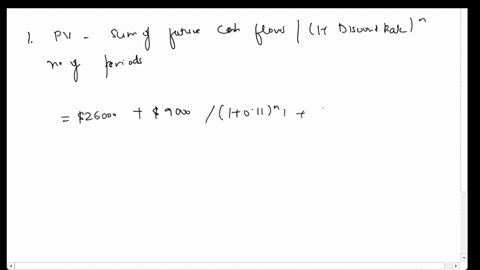 1. PV = Sum of future cash flows / (1+ Discount Rate)^n
no of periods
= $26000 + $9000 / (1+0.11)^n1 +